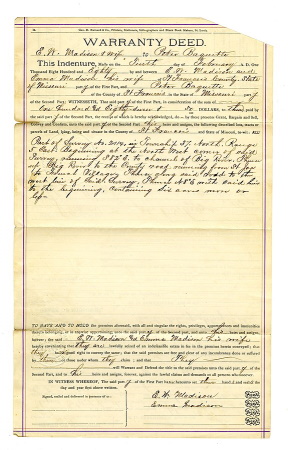 WARRANTY DEED.
E. W. Madison & wife to Peter Baquette
This Indenture, Made on the Tenth day of February A. D. One
Thousand Eight Hundred and Eighty by and between E. W. Madison and
Emma Madison his wife St Francois County State
of Missouri part of the First Part, and Peter Baquette
of the County of St Francois in the State of Missouri
of the Second Part; WITNESSETH, That said part of the First Part, in consideration of the sum of
One Hundred & Eighty DOLLARS, to paid by
said part of the Second Part, the receipt of which is hereby acknowledged, do by these presents, Grant, Bargain and Sell,
Convey and Confirm, unto the said part of the Second Part, his heirs and assigns, the following described lots, tracts or
parcels of Land, lying, being and situate in the County of St Francois and State of Missouri, to-wit: All
Part of Survey No. 2114, in Township 37, North, Range
5 East Beginning at the North West corner of said
Survey, thence to channel of Big River, Thence
up Big River to the County road running from
to French Village, Thence along said road to the
west line of said Survey, Thence with said line
to the beginning, containing six acres more or
less
TO HAVE AND TO HOLD the premises aforesaid, with all and singular the rights, privileges, appurtenances and immunities
thereto belonging, or in anywise appertaining, unto the said part of the Second Part, and unto his heirs and assigns
forever; the said E. W. Madison and Emma Madison his wife
hereby covenanting that they are lawfully seized of an indefeasible estate in fee in the premises herein conveyed; that
they have good right to convey the same; that the said premises are free and clear of any incumbrance done or suffered
by them or those under whom they claim; and that They
will Warrant and Defend the title to the said premises unto the said part of the
Second Part, and to his heirs and assigns, forever, against the lawful claims and demands of all persons whomsoever.
IN WITNESS WHEREOF, The said part of the First Part hereunto set their hand and seal the day
and year first above written.
Signed, sealed and delivered in presence of us
E. W. Madison
Emma Madison